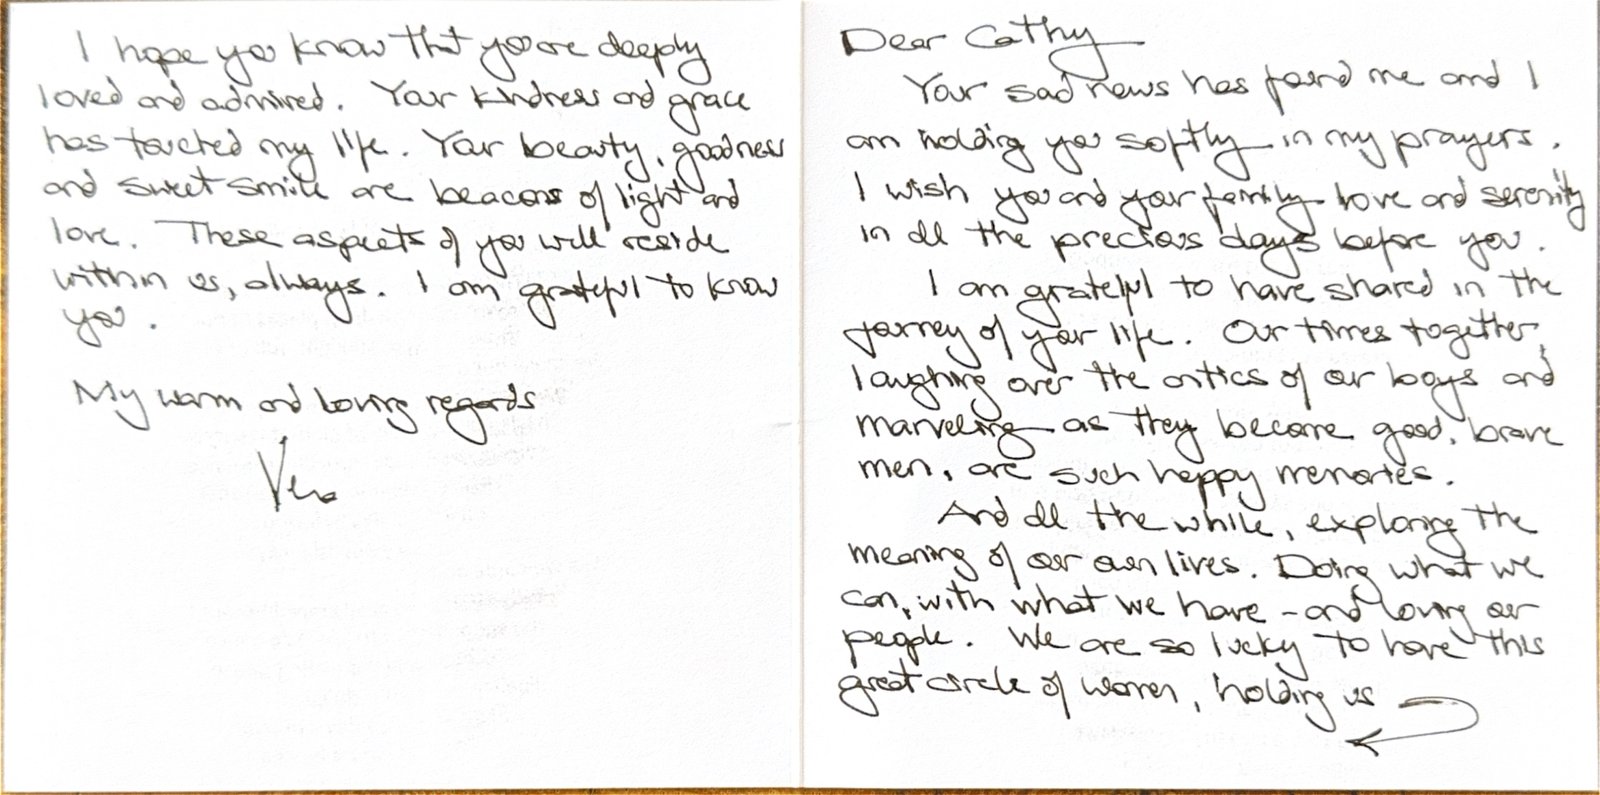 Dear Cathy
Your sad news has found me and I
am holding you softly in my prayers.
I wish you and your family love and serenity
in all the precious days before you.
I am grateful to have shared in the
journey of your life. Our times together,
laughing over the antics of our boys and
marveling as they become good, brave
men, are such happy memories.
And all the while, exploring the
meaning of our own lives. Doing what we
can, with what we have - and loving our
people. We are so lucky to have this
great circle of women, holding us
I hope you know that you are deeply
loved and admired. Your kindness and grace
has touched my life. Your beauty, goodness
and sweet smile are beacons of light and
love. These aspects of you will reside
within us, always. I am grateful to know
you.
My warm and loving regards
Vera